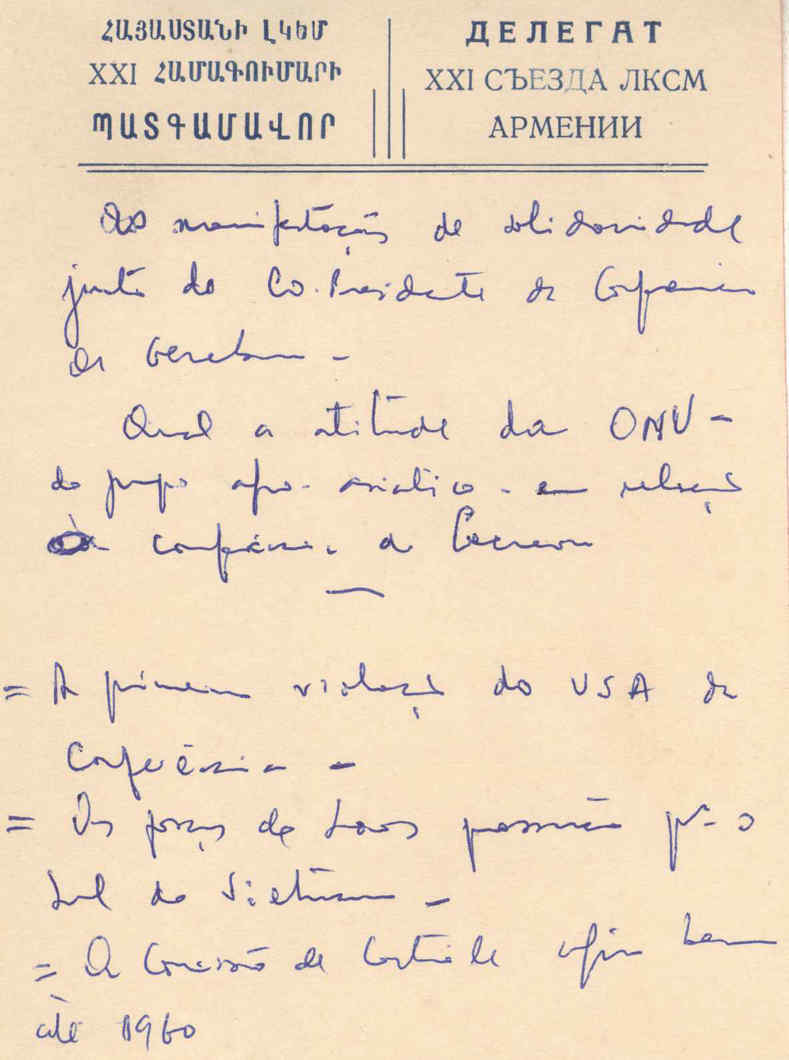 ՀԱՅԱՍՏԱՆԻ ԼԿԵՄ
XXI ՀԱՄԱԳՈՒՄԱՐԻ
ՊԱՏԳԱՄԱՎՈՐ
ДЕЛЕГАТ
XXI СЪЕЗДА ЛКСМ
АРМЕНИИ
As manifestações de solidariedade
junto do Co-Presidente da Conferência
de
Qual a atitude da ONU -
do grupo afro-asiatico - em relação
a conferência de
= A primeira violação do USA da
Conferência -
= As forças de Laos passarão pª o
Sul do Vietnam -
= A Comissão de Controle agiu bem
até 1960